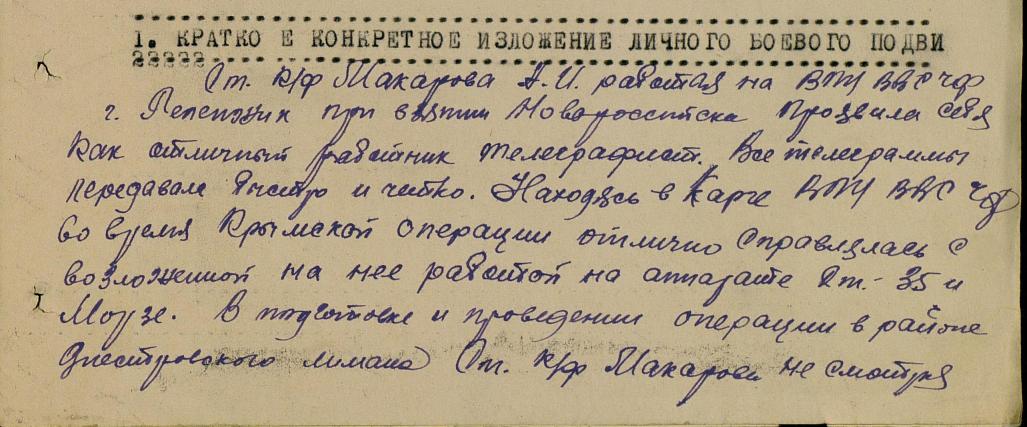 1. КРАТКО Е КОНКРЕТНОЕ ИЗЛОЖЕНИЕ ЛИЧНОГО БОЕВОГО ПОДВИ
Ст. к/ф Макарова А.И. работая на ВПУ ВВС ЧФ
г. Геленжик при взятии Новороссийска проявила себя
как отличный работник телеграфист. Все телеграммы
передавала быстро и четко. Находясь в Карге ВПУ ВВС ЧФ
во время Крымской операции отлично справлялась с
возложенной на нее работой на аппарате Ст.-35 и
Морзе. В подготовке и проведении операции в районе
Днестровского лимана Ст. к/ф Макарова не смотря